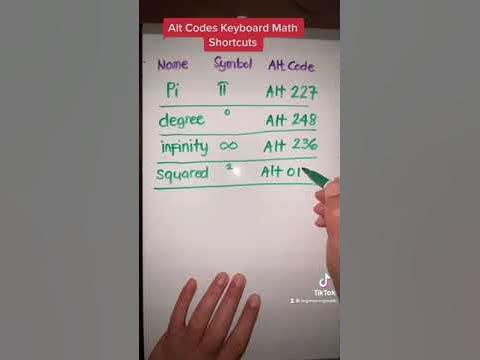 Alt Codes Keyboard Math
Shortcuts
Name Symbol Alt Code
Pi π Alt 227
degree ° Alt 248
infinity ∞ Alt 236
squared ² Alt 01
TikTok